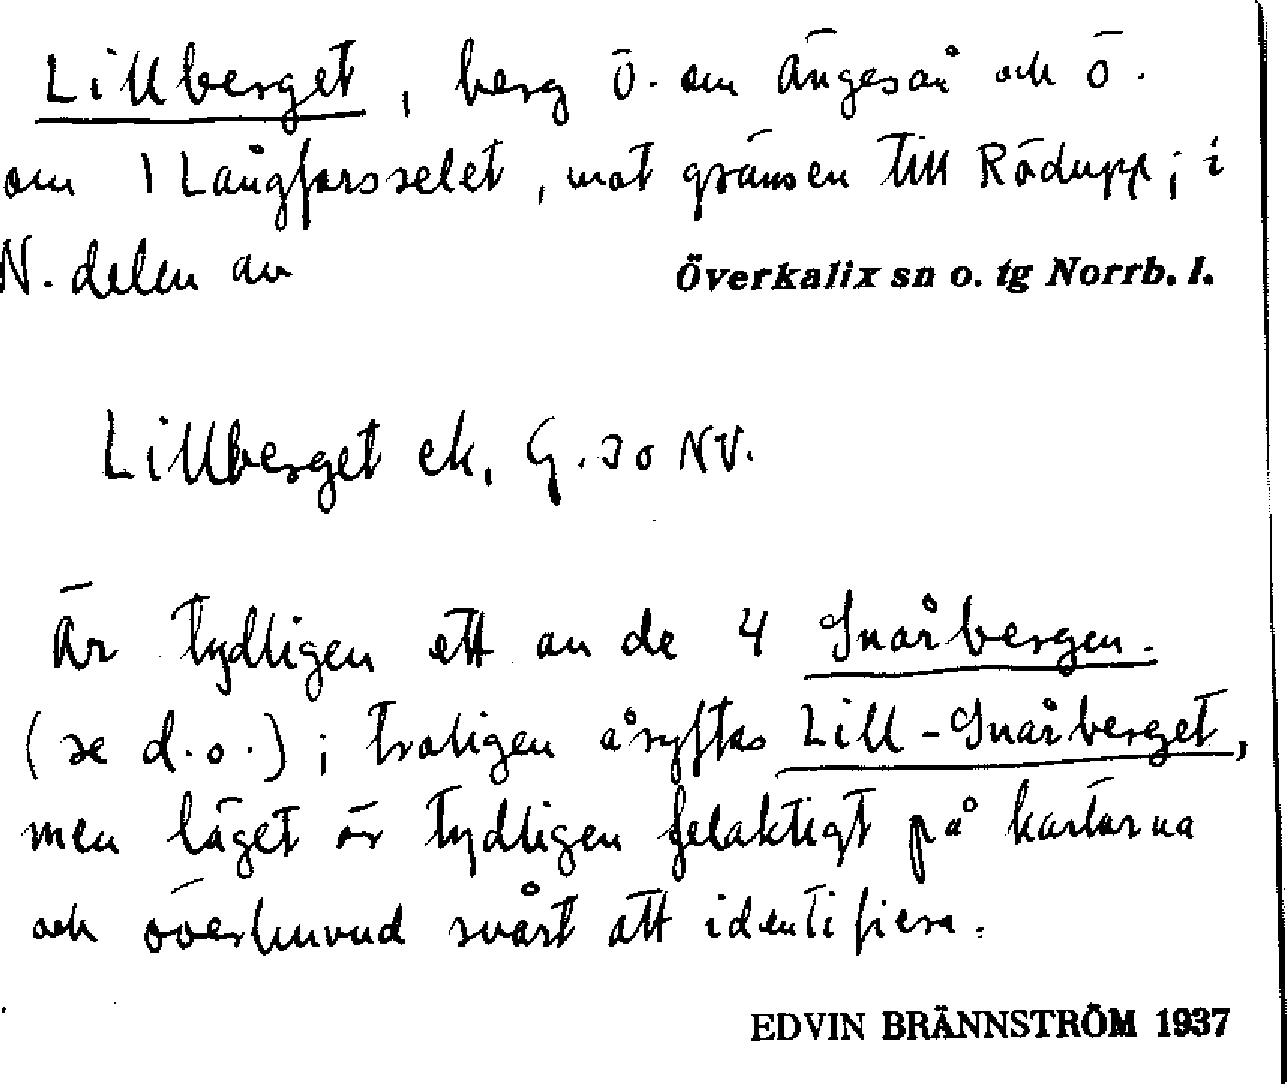 Lillberget, berg ö. om Ängesån och ö.
om Långforsselet, mot gränsen till Rödupp; i
N. delen av Överkalix sn o. tg Norrb. l.
Lillberget ek. G. 30 NV.
Är tydligen ett av de 4 Snårbergen.
(se d.o.); troligen åsyftas Lill-Snårberget,
men läget är tydligen felaktigt på kartorna
och överhuvud svårt att identifiera.
EDVIN BRÄNNSTRÖM 1937